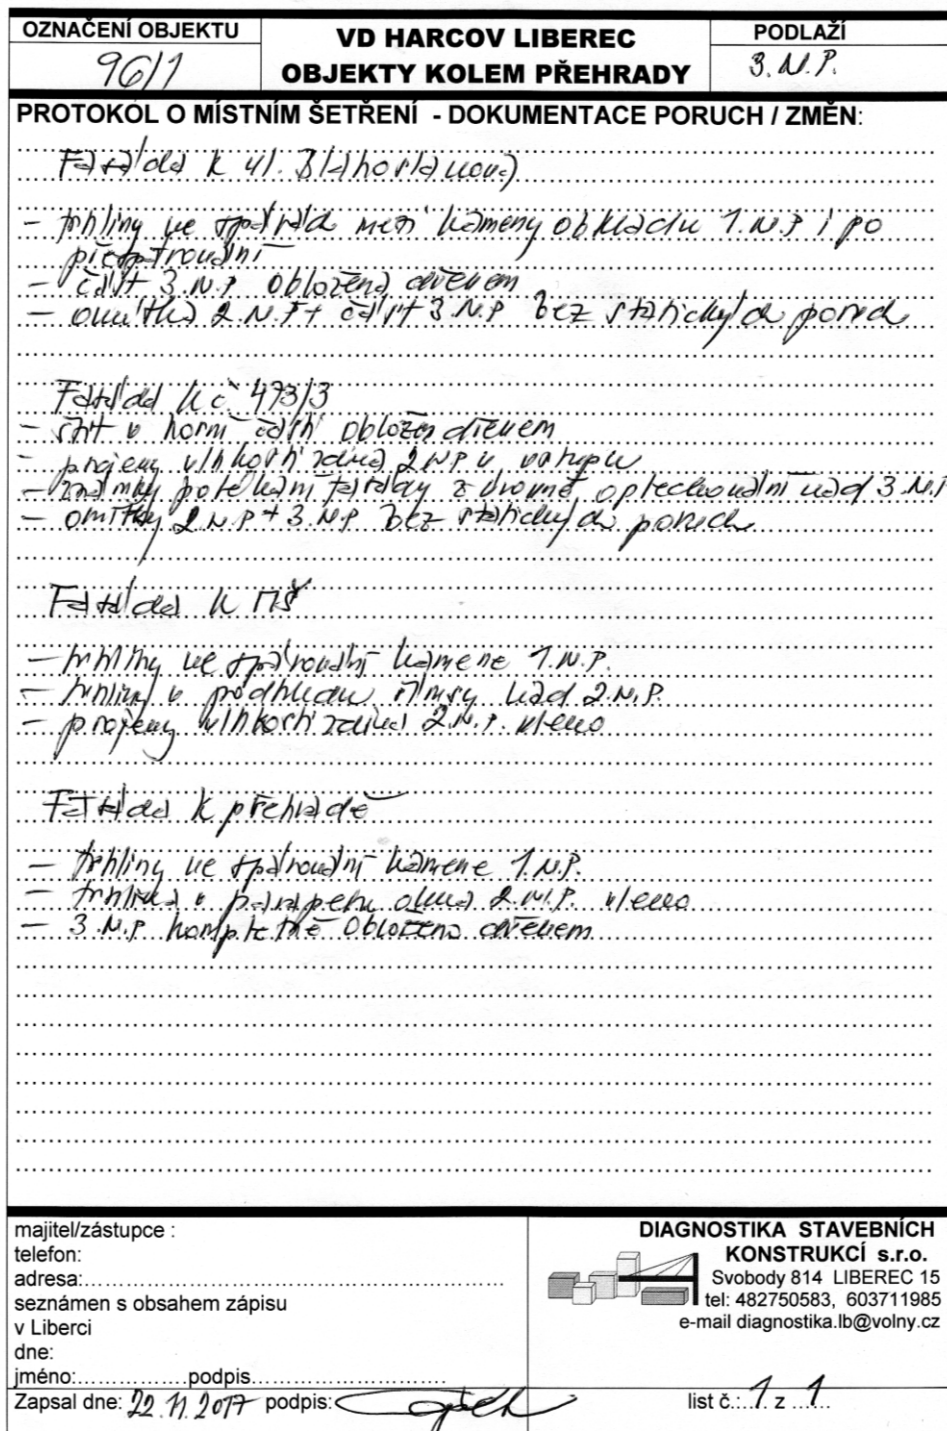 OZNAČENÍ OBJEKTU
96/1
VD HARCOV LIBEREC
OBJEKTY KOLEM PŘEHRADY
PODLAŽÍ
3. N.P.
PROTOKOL O MÍSTNÍM ŠETŘENÍ - DOKUMENTACE PORUCH / ZMĚN:
Fasáda k ul. Blahoslavova
- trhliny ve spárách mezi kameny obkladu 1.N.P i po
přespárování
- část 3.N.P obložena dřevem
- omítka 2.N.P + část 3.N.P bez statických poruch
Fasáda k č 473/3
- štít v horní části obložen dřevem
- projevy vlhkosti zdiva 2NP u vstupu
- známky potékání fasády z úrovně oplechování nad 3.N.P
- omítky 2.N.P + 3.N.P bez statických poruch
Fasáda k MŠ
- trhliny ve spárování kamene 1.N.P.
- trhliny v podhledu římsy nad 2.N.P.
- projevy vlhkosti zdiva 2.N.P. vlevo
Fasáda k přehradě
- trhliny ve spárování kamene 1.N.P.
- trhlina v parapetu okna 2.N.P. vlevo
- 3.N.P kompletně obloženo dřevem
majitel/zástupce :
telefon:
adresa:
seznámen s obsahem zápisu
v Liberci
dne:
jméno:...............podpis
Zapsal dne: 22.11.2017 podpis:
DIAGNOSTIKA STAVEBNÍCH
KONSTRUKCÍ s.r.o.
Svobody 814 LIBEREC 15
tel: 482750583, 603711985
e-mail diagnostika.lb@volny.cz
list č.: 1 z 1